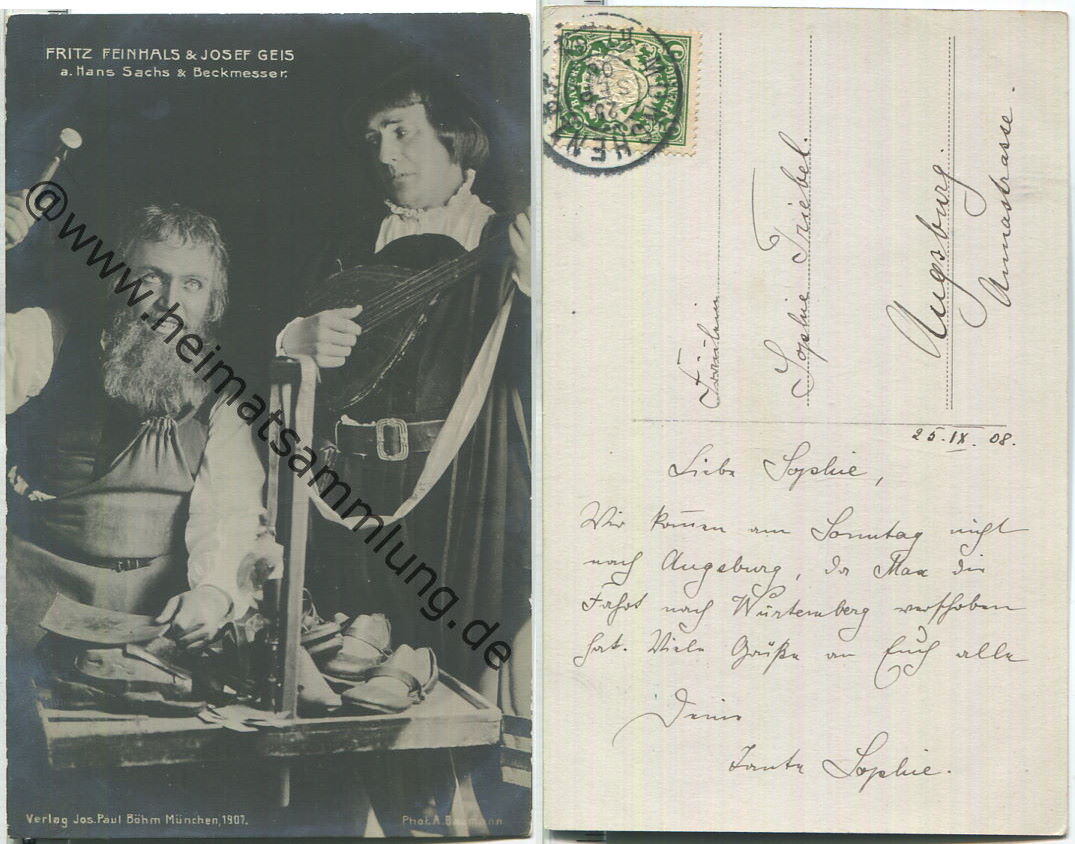 FRITZ FEINHALS & JOSEF GEIS
a. Hans Sachs & Beckmesser.
@www.heimatsammlung.de
Verlag Jos. Paul Böhm München, 1907.
Phot. A. Baumann
BAYERN
PFENNIG
MUENCHEN
25 SEP
Fräulein
Sophie Triebel.
Augsburg.
Annastrasse.
25.IX.08.
Liebe Sophie,
Wir kom̄en am Sonntag nicht
nach Augsburg, da Max die
Fahrt nach Würtemberg verschoben
hat. Viele Grüße an Euch alle
Deine
Tante Sophie.